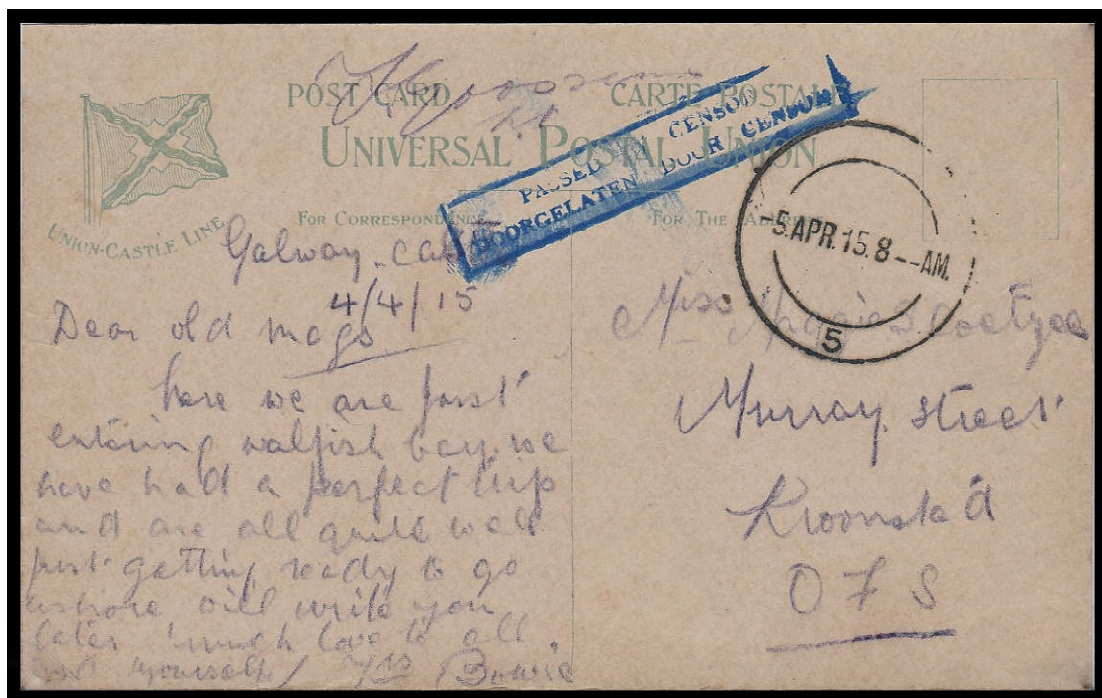 POST CARD CARTE POSTALE
UNIVERSAL POSTAL UNION
UNION-CASTLE LINE
PASSED BY CENSOR
DOORGELATEN DOOR CENSOR
FOR CORRESPONDENCE
FOR THE ADDRESS
-5.APR.15.8--AM.
5
Galway Castle
4/4/15
Dear old mags
here we are just
entering walfish bay. we
have had a perfect trip
and are all quite well
just getting ready to go
ashore will write you
later much love to all
and yourself / Yrs Bowie
Miss Coetzee
Murray Street
Kroonstad
OFS